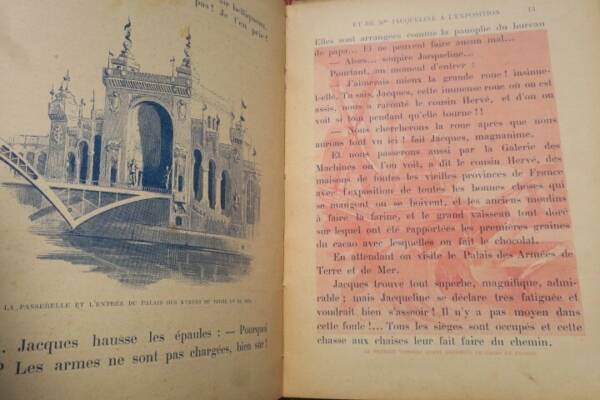 su belliqueuse,
pas! Je t'en prie!
LA PASSERELLE ET L'ENTRÉE DU PALAIS DES ARMÉES DE TERRE ET DE MER
. Jacques hausse les épaules : — Pourquoi
? Les armes ne sont pas chargées, bien sûr!
ET DE Mlle JACQUELINE A L'EXPOSITION
Elles sont arrangées comme la panoplie du bureau
de papa... Et ne peuvent faire aucun mal...
— Alors... soupire Jacqueline...
Pourtant, au moment d'entrer :
— J'aimerais mieux la grande roue! insinue-
t-elle. Tu sais, Jacques, cette immense roue où on est
assis, nous a raconté le cousin Hervé, et d'où on
voit si loin pendant qu'elle tourne!!
— Nous chercherons la roue après que nous
aurons tout vu ici! fait Jacques, magnanime.
Et nous passerons aussi par la Galerie des
Machines où l'on voit, a dit le cousin Hervé, des
maisons de toutes les vieilles provinces de France
avec l'exposition de toutes les bonnes choses qui
se mangent ou se boivent, et les anciens moulins
à faire la farine, et le grand vaisseau tout doré
sur lequel ont été rapportées les premières graines
du cacao avec lesquelles on fait le chocolat.
En attendant on visite le Palais des Armées de
Terre et de Mer.
Jacques trouve tout superbe, magnifique, admi-
rable; mais Jacqueline se déclare très fatiguée et
voudrait bien s'asseoir! Il n'y a pas moyen dans
cette foule!... Tous les sièges sont occupés et cette
chasse aux chaises leur fait faire du chemin.